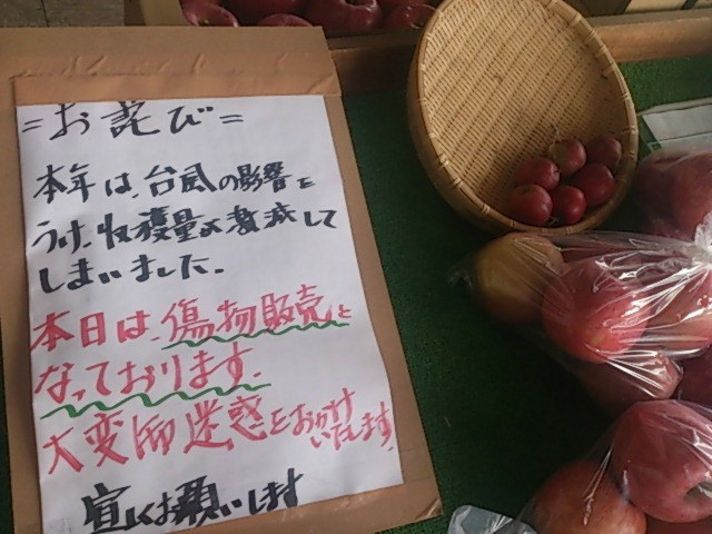 =お詫び=
本年は、台風の影響を
うけ、収穫量が激減して
しまいました。
本日は、傷物販売と
なっております。
大変御迷惑をおかけ
いたします。
宜しくお願いします